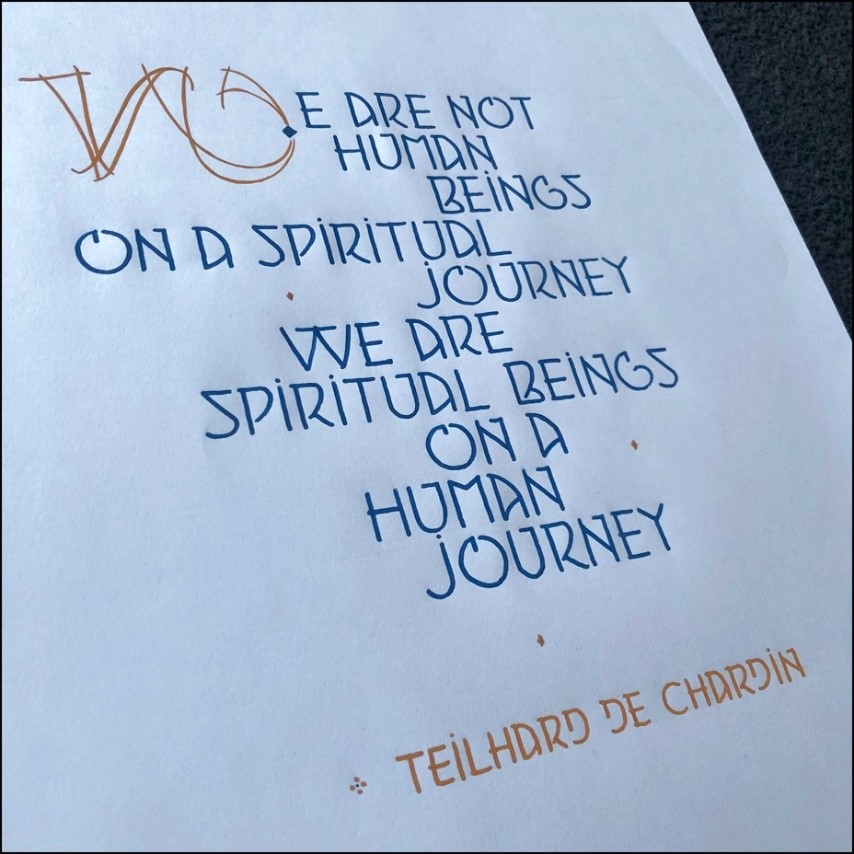 WE ARE NOT
HUMAN
BEiNGS
ON A SPiRiTUAL
JOURNEY
WE ARE
SPiRiTUAL BEiNGS
ON A
HUMAN
JOURNEY
TEiLHARD DE CHARDiN